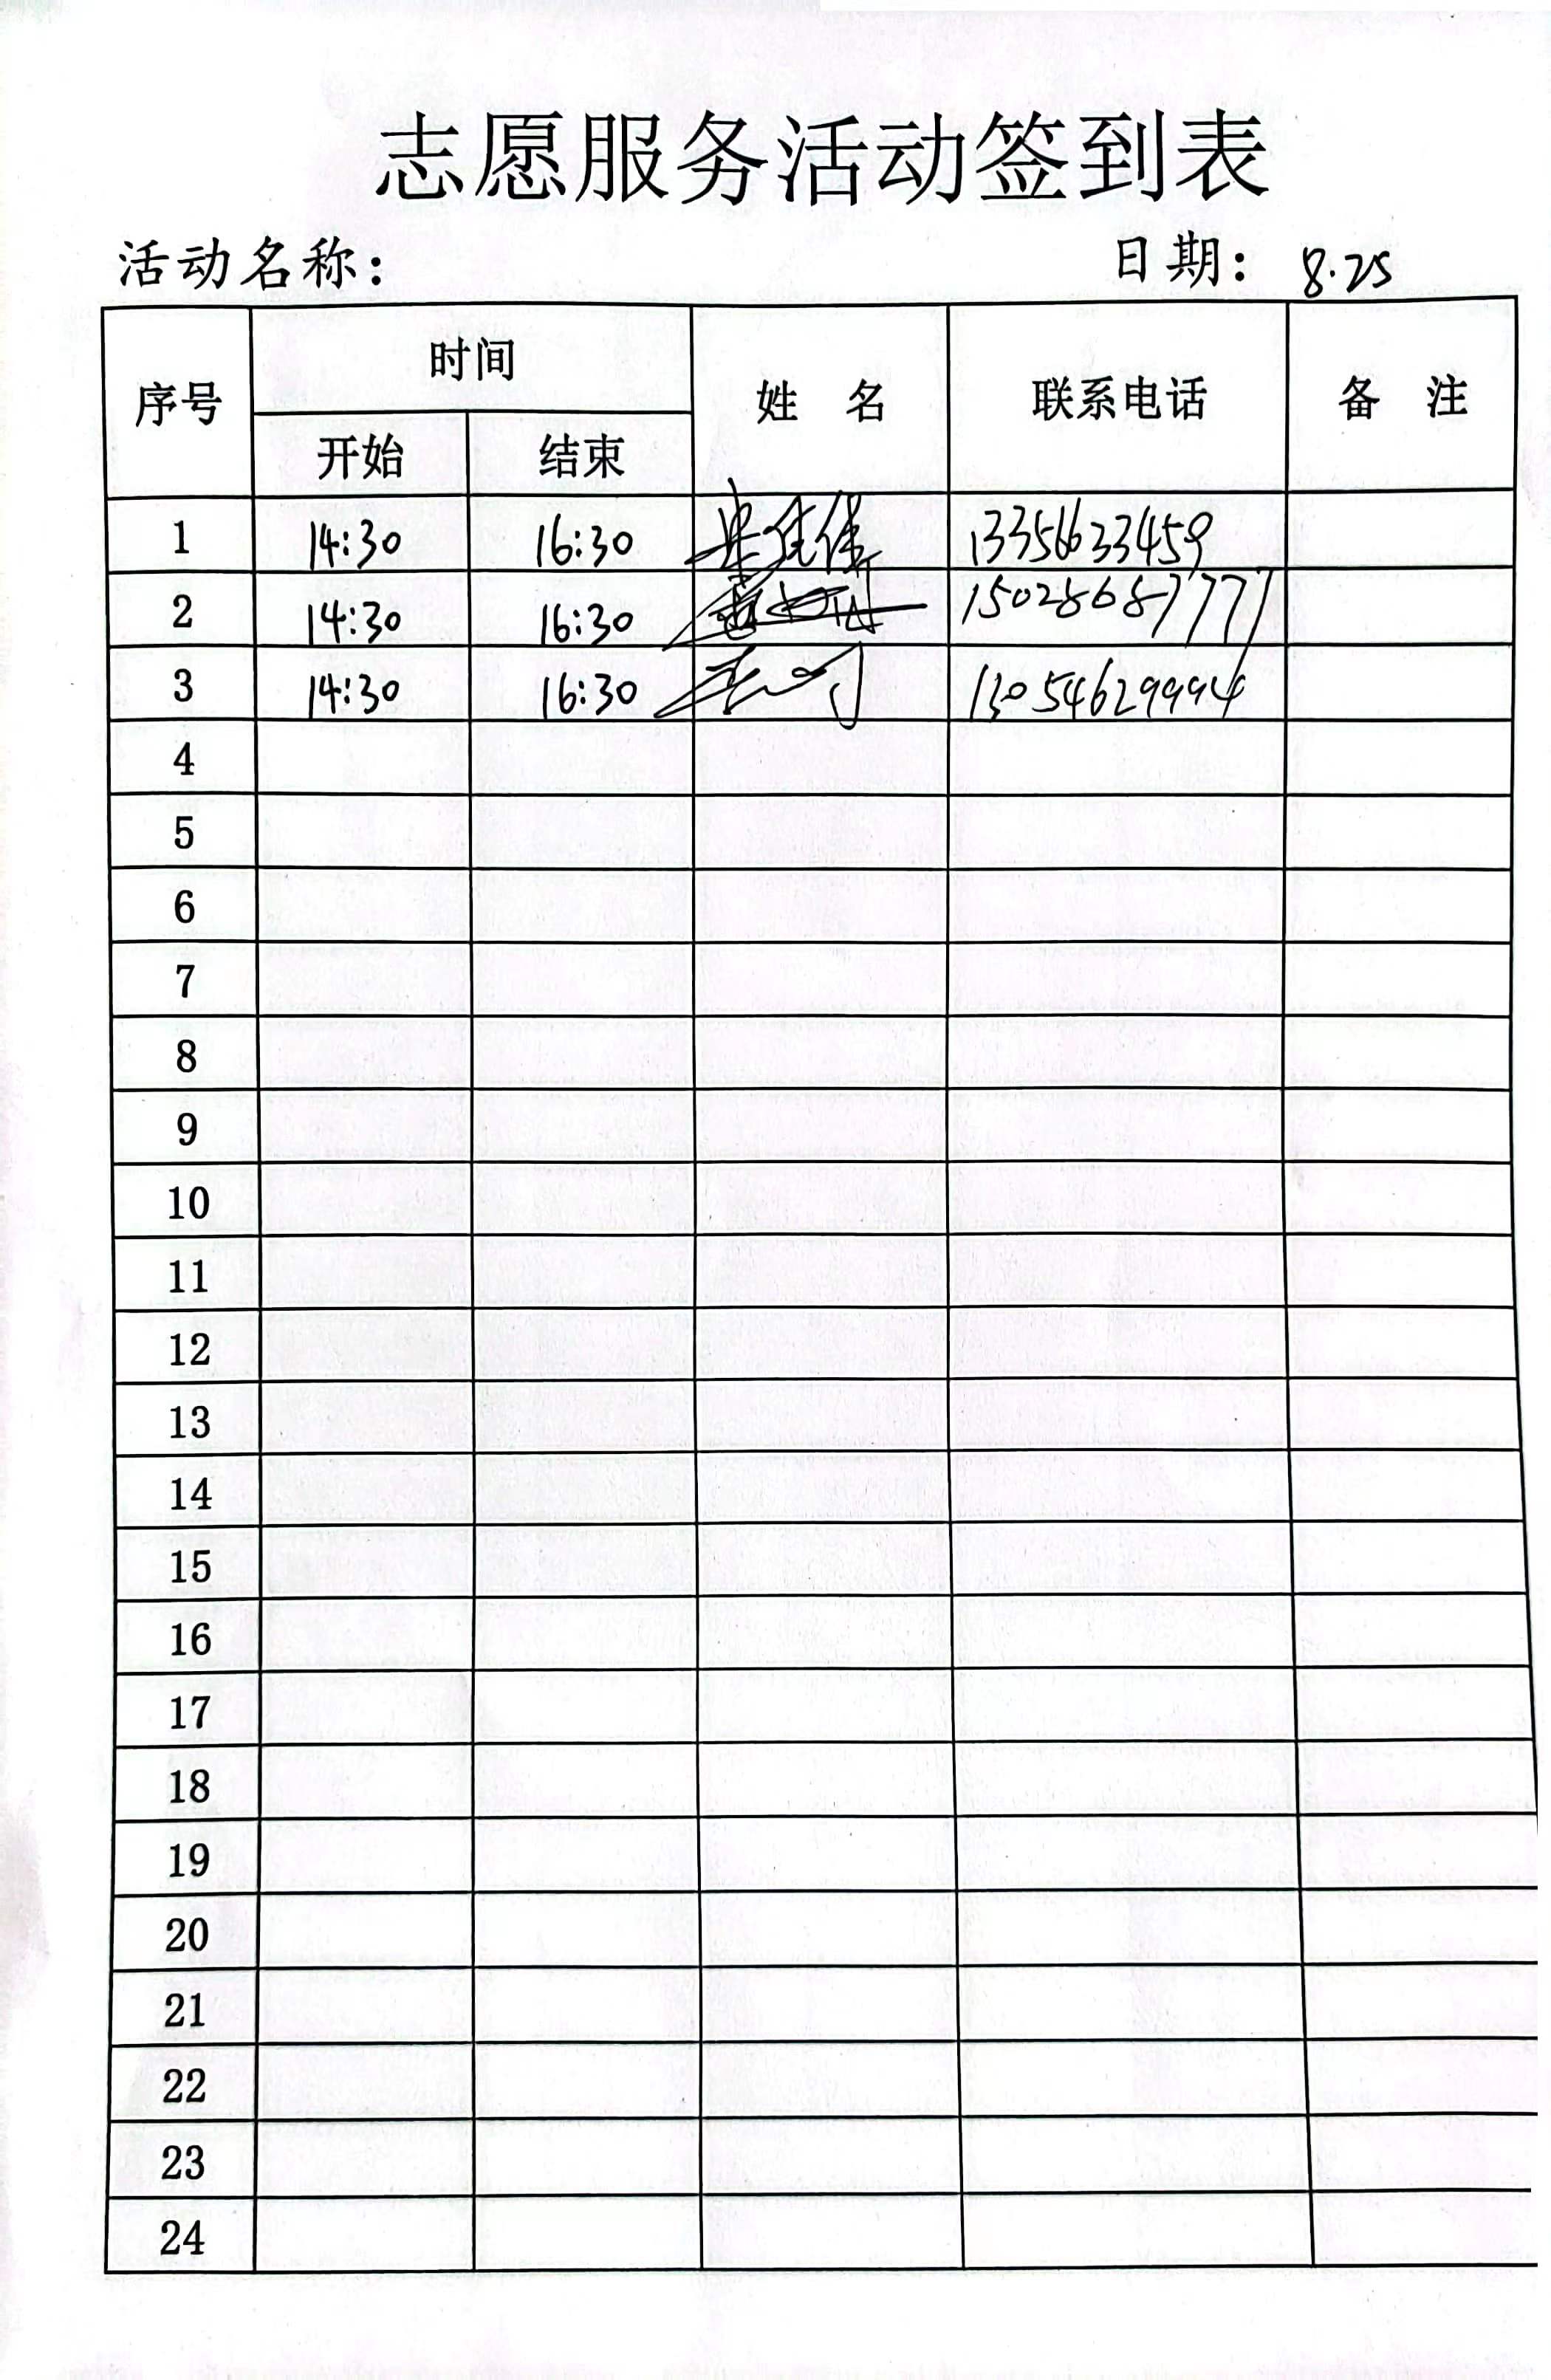 志愿服务活动签到表
活动名称： 日期：8.25
序号 时间 姓 名 联系电话 备 注
开始 结束
1 14:30 16:30 13356633459
2 14:30 16:30 15028687777
3 14:30 16:30 13054629994
4
5
6
7
8
9
10
11
12
13
14
15
16
17
18
19
20
21
22
23
24